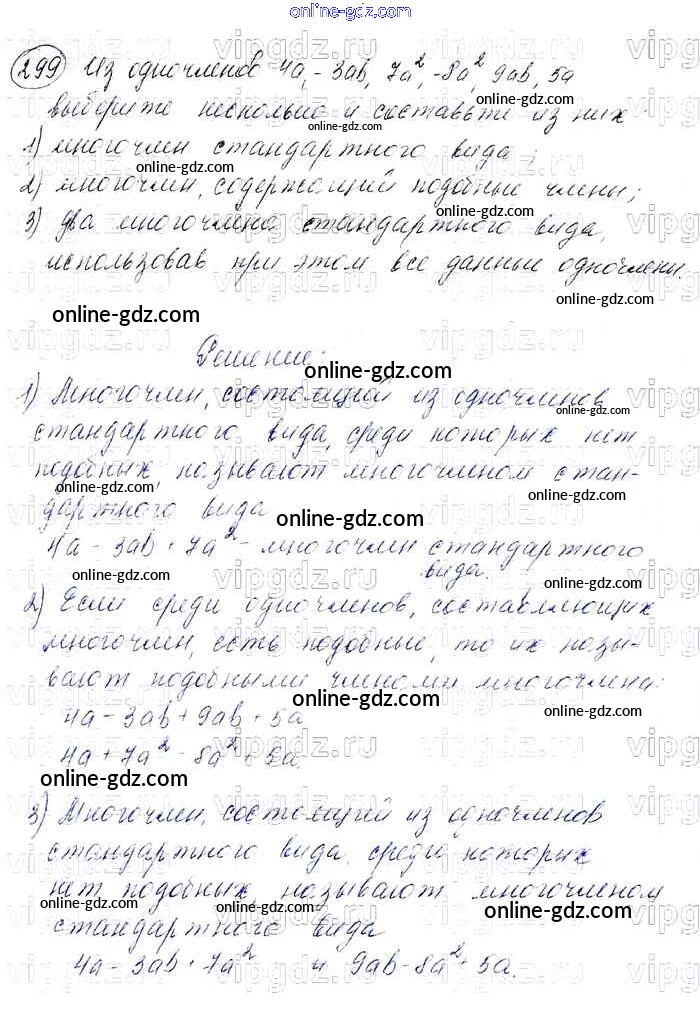 online-gdz.com
299 Из одночленов 4a, -3ab, 7a², -8a², 9ab, 5a
выберите несколько и составьте из них
1) многочлен стандартного вида;
2) многочлен, содержащий подобные члены;
3) два многочлена стандартного вида,
использовав при этом все данные одночлены.
Решение:
1) Многочлен, состоящий из одночленов
стандартного вида, среди которых нет
подобных, называют многочленом стан-
дартного вида
4a - 3ab + 7a² - многочлен стандартного
вида.
2) Если среди одночленов, составляющих
многочлен, есть подобные, то их назы-
вают подобными членами многочлена:
4a - 3ab + 9ab + 5a
4a + 7a² - 8a² + 5a.
3) Многочлен, состоящий из одночленов
стандартного вида, среди которых
нет подобных, называют многочленом
стандартного вида
4a - 3ab + 7a² и 9ab - 8a² + 5a.